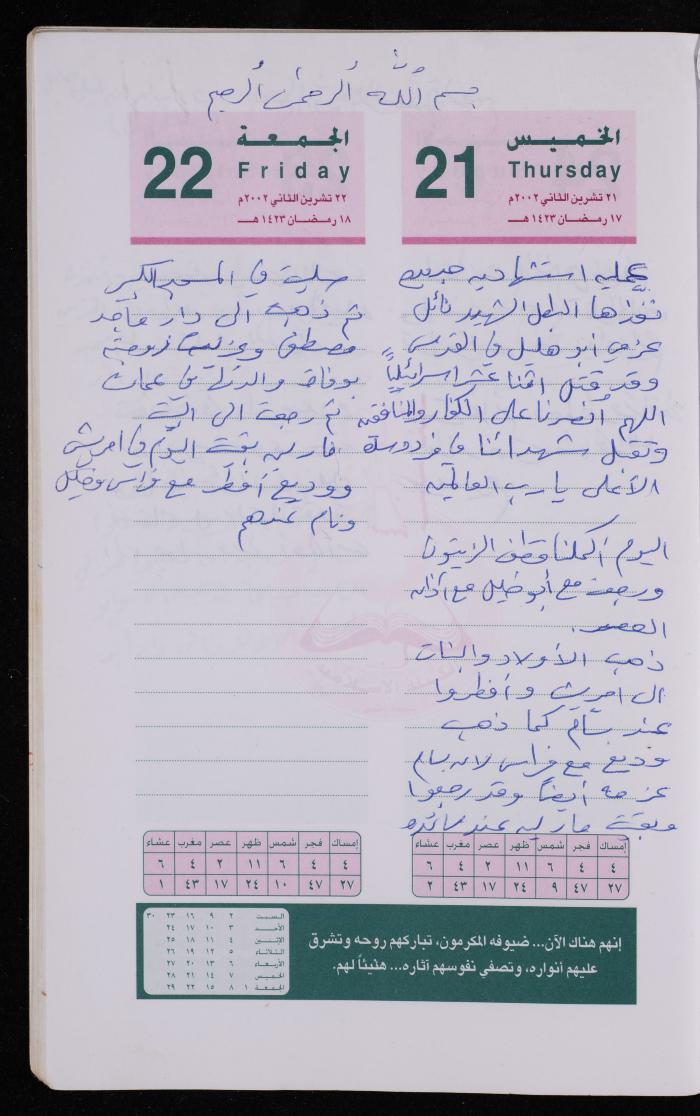 بسم الله الرحمن الرحيم
الخميس
21
Thursday
٢١ تشرين الثاني ٢٠٠٢م
١٧ رمضان ١٤٢٣ هـ
عمليه استشهاديه جديده
نفذها البطل الشهيد نائل
عزمي أبو هليل في القدس
وقد قتل اثنا عشر اسرائيلياً
اللهم أنصرنا على الكفار والمنافقين
وتقبل شهدائنا في فردوسك
الأعلى يا رب العالمين
اليوم أكملنا قطف الزيتون
ورجعت مع أبو خليل مع أذان
العصر.
ذهب الأولاد والبنات
الى امريش وأفطروا
عند بسام كما ذهب
وديع مع فراس لان بسام
عزمه أيضاً وقد رجعوا
وبقيت مارليه عند
إمساك فجر شمس ظهر عصر مغرب عشاء
٤ ٤ ٦ ١١ ٢ ٤ ٦
٢٧ ٤٧ ٩ ٢٤ ١٧ ٤٣ ٢
الجمعة
22
Friday
٢٢ تشرين الثاني ٢٠٠٢م
١٨ رمضان ١٤٢٣ هـ
صليت في المسجد الكبير
ثم ذهبت الى دار ماجد
مصطفى وعزيت زوجته
بوفاة والدتها في عمان
ثم رجعت الى البيت
مارليه بقيت اليوم في امريش
ووديع أفطر مع فراس وخليل
ونام عندهم
إمساك فجر شمس ظهر عصر مغرب عشاء
٤ ٤ ٦ ١١ ٢ ٤ ٦
٢٧ ٤٧ ١٠ ٢٤ ١٧ ٤٣ ١
إنهم هناك الآن... ضيوفه المكرمون، تباركهم روحه وتشرق
عليهم أنواره، وتصفي نفوسهم آثاره... هنيئاً لهم.
السبت ٢ ٩ ١٦ ٢٣ ٣٠
الأحد ٣ ١٠ ١٧ ٢٤
الإثنين ٤ ١١ ١٨ ٢٥
الثلاثاء ٥ ١٢ ١٩ ٢٦
الأربعاء ٦ ١٣ ٢٠ ٢٧
الخميس ٧ ١٤ ٢١ ٢٨
الجمعة ١ ٨ ١٥ ٢٢ ٢٩